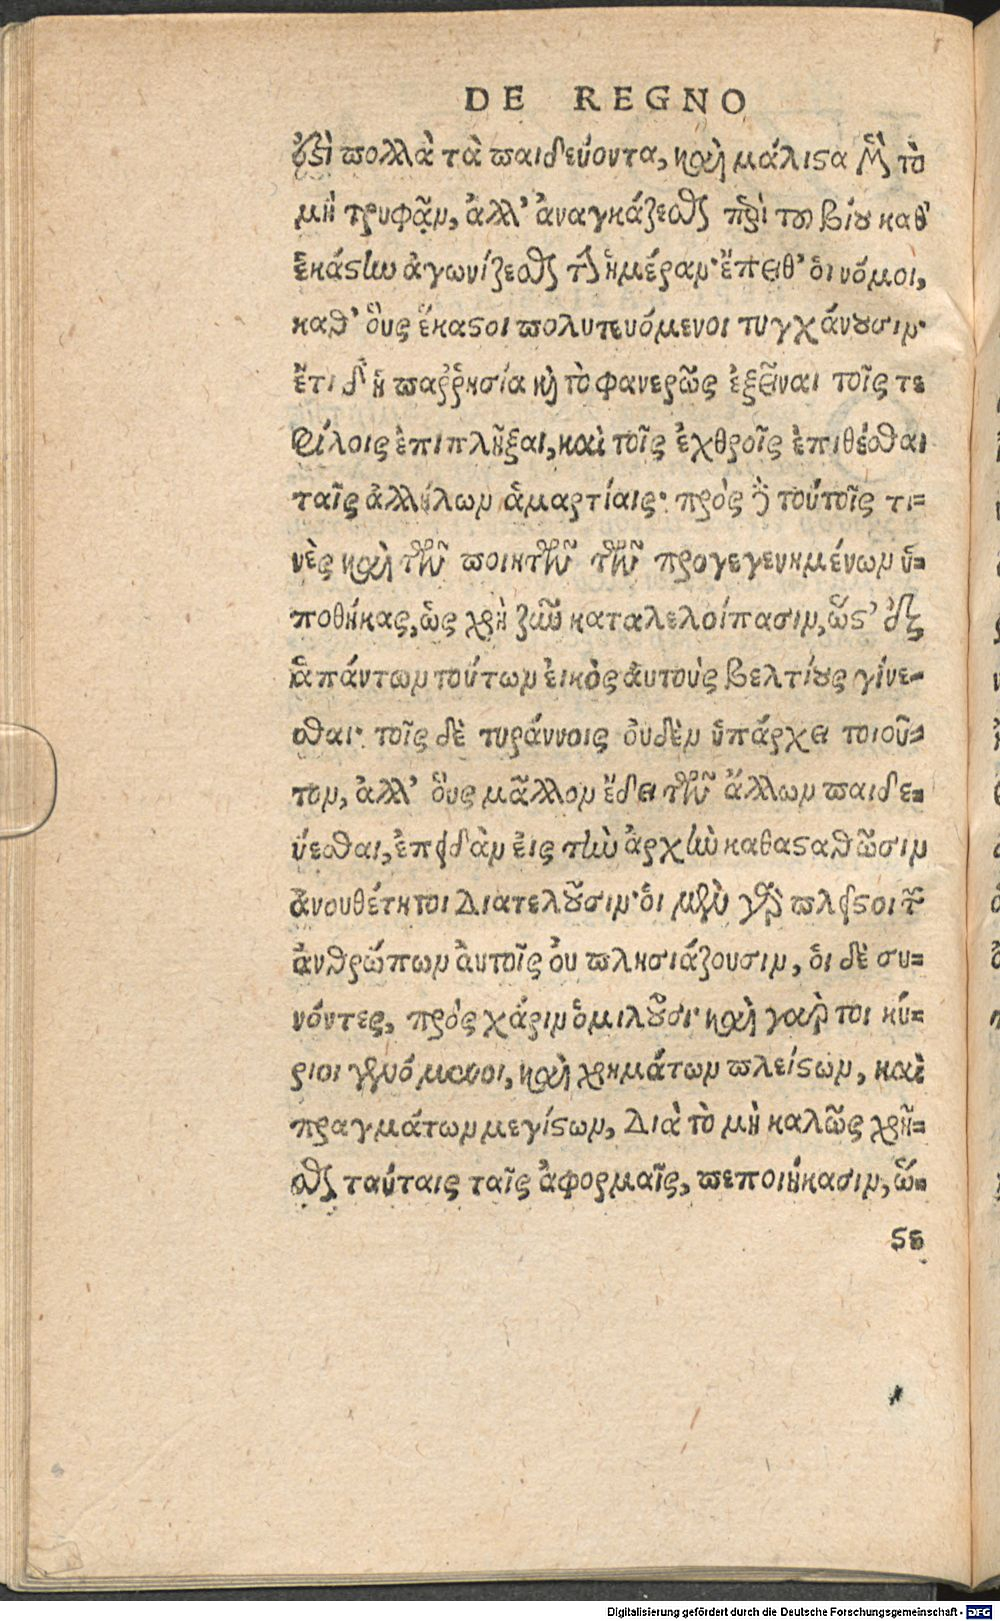 DE REGNO
ἐστὶ πολλὰ τὰ παιδεύοντα, καὶ μάλιστα μὲν τὸ
μὴ τρυφᾶν, ἀλλ' ἀναγκάζεσθαι περὶ τοῦ βίου καθ'
ἑκάστην ἀγωνίζεσθαι τὴν ἡμέραν· ἔπειθ' οἱ νόμοι,
καθ' οὓς ἕκαστοι πολυτευόμενοι τυγχάνουσιν·
ἔτι δ' ἡ παῤῥησία καὶ τὸ φανερῶς ἐξεῖναι τοῖς τε
φίλοις ἐπιπλῆξαι, καὶ τοῖς ἐχθροῖς ἐπιθέσθαι
ταῖς ἀλλήλων ἁμαρτίαις· πρὸς δὲ τούτοῖς τι-
νὲς καὶ τῶν ποιητῶν τῶν προγεγενημένων ὑ-
ποθήκας, ὡς χρὴ ζῆν καταλελοίπασιν, ὥστ' ἐξ
ἁπάντων τούτων εἰκὸς αὐτοὺς βελτίους γίνε-
σθαι· τοῖς δὲ τυράννοις οὐδὲν ὑπάρχει τοιοῦ-
τον, ἀλλ' οὓς μᾶλλον ἔδει τῶν ἄλλων παιδε-
ύεσθαι, ἐπειδὰν εἰς τὴν ἀρχὴν κατασταθῶσιν
ἀνουθέτητοι διατελοῦσιν· οἱ μὲν γὰρ πλεῖστοι τῶν
ἀνθρώπων αὐτοῖς οὐ πλησιάζουσιν, οἱ δὲ συ-
νόντες, πρὸς χάριν ὁμιλοῦσι· καὶ γάρ τοι κύ-
ριοι γενόμενοι, καὶ χρημάτων πλείστων, καὶ
πραγμάτων μεγίστων, διὰ τὸ μὴ καλῶς χρῆ-
σθαι ταύταις ταῖς ἀφορμαῖς, πεποιήκασιν, ὥ-
στε